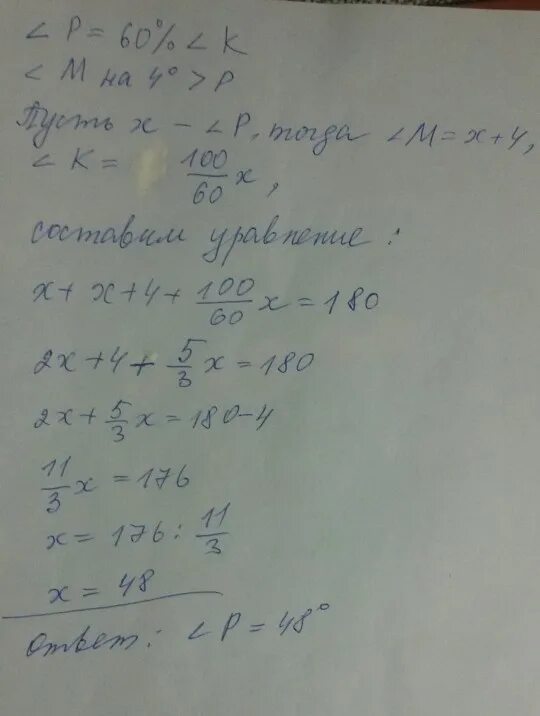 ∠ P = 60% ∠ K
∠ M на 4° > P
Пусть x - ∠P, тогда ∠M = x+4,
∠ K = 100/60 x,
составим уравнение:
x + x + 4 + 100/60 x = 180
2x + 4 + 5/3 x = 180
2x + 5/3 x = 180-4
11/3 x = 176
x = 176 : 11/3
x = 48
ответ: ∠ P = 48°